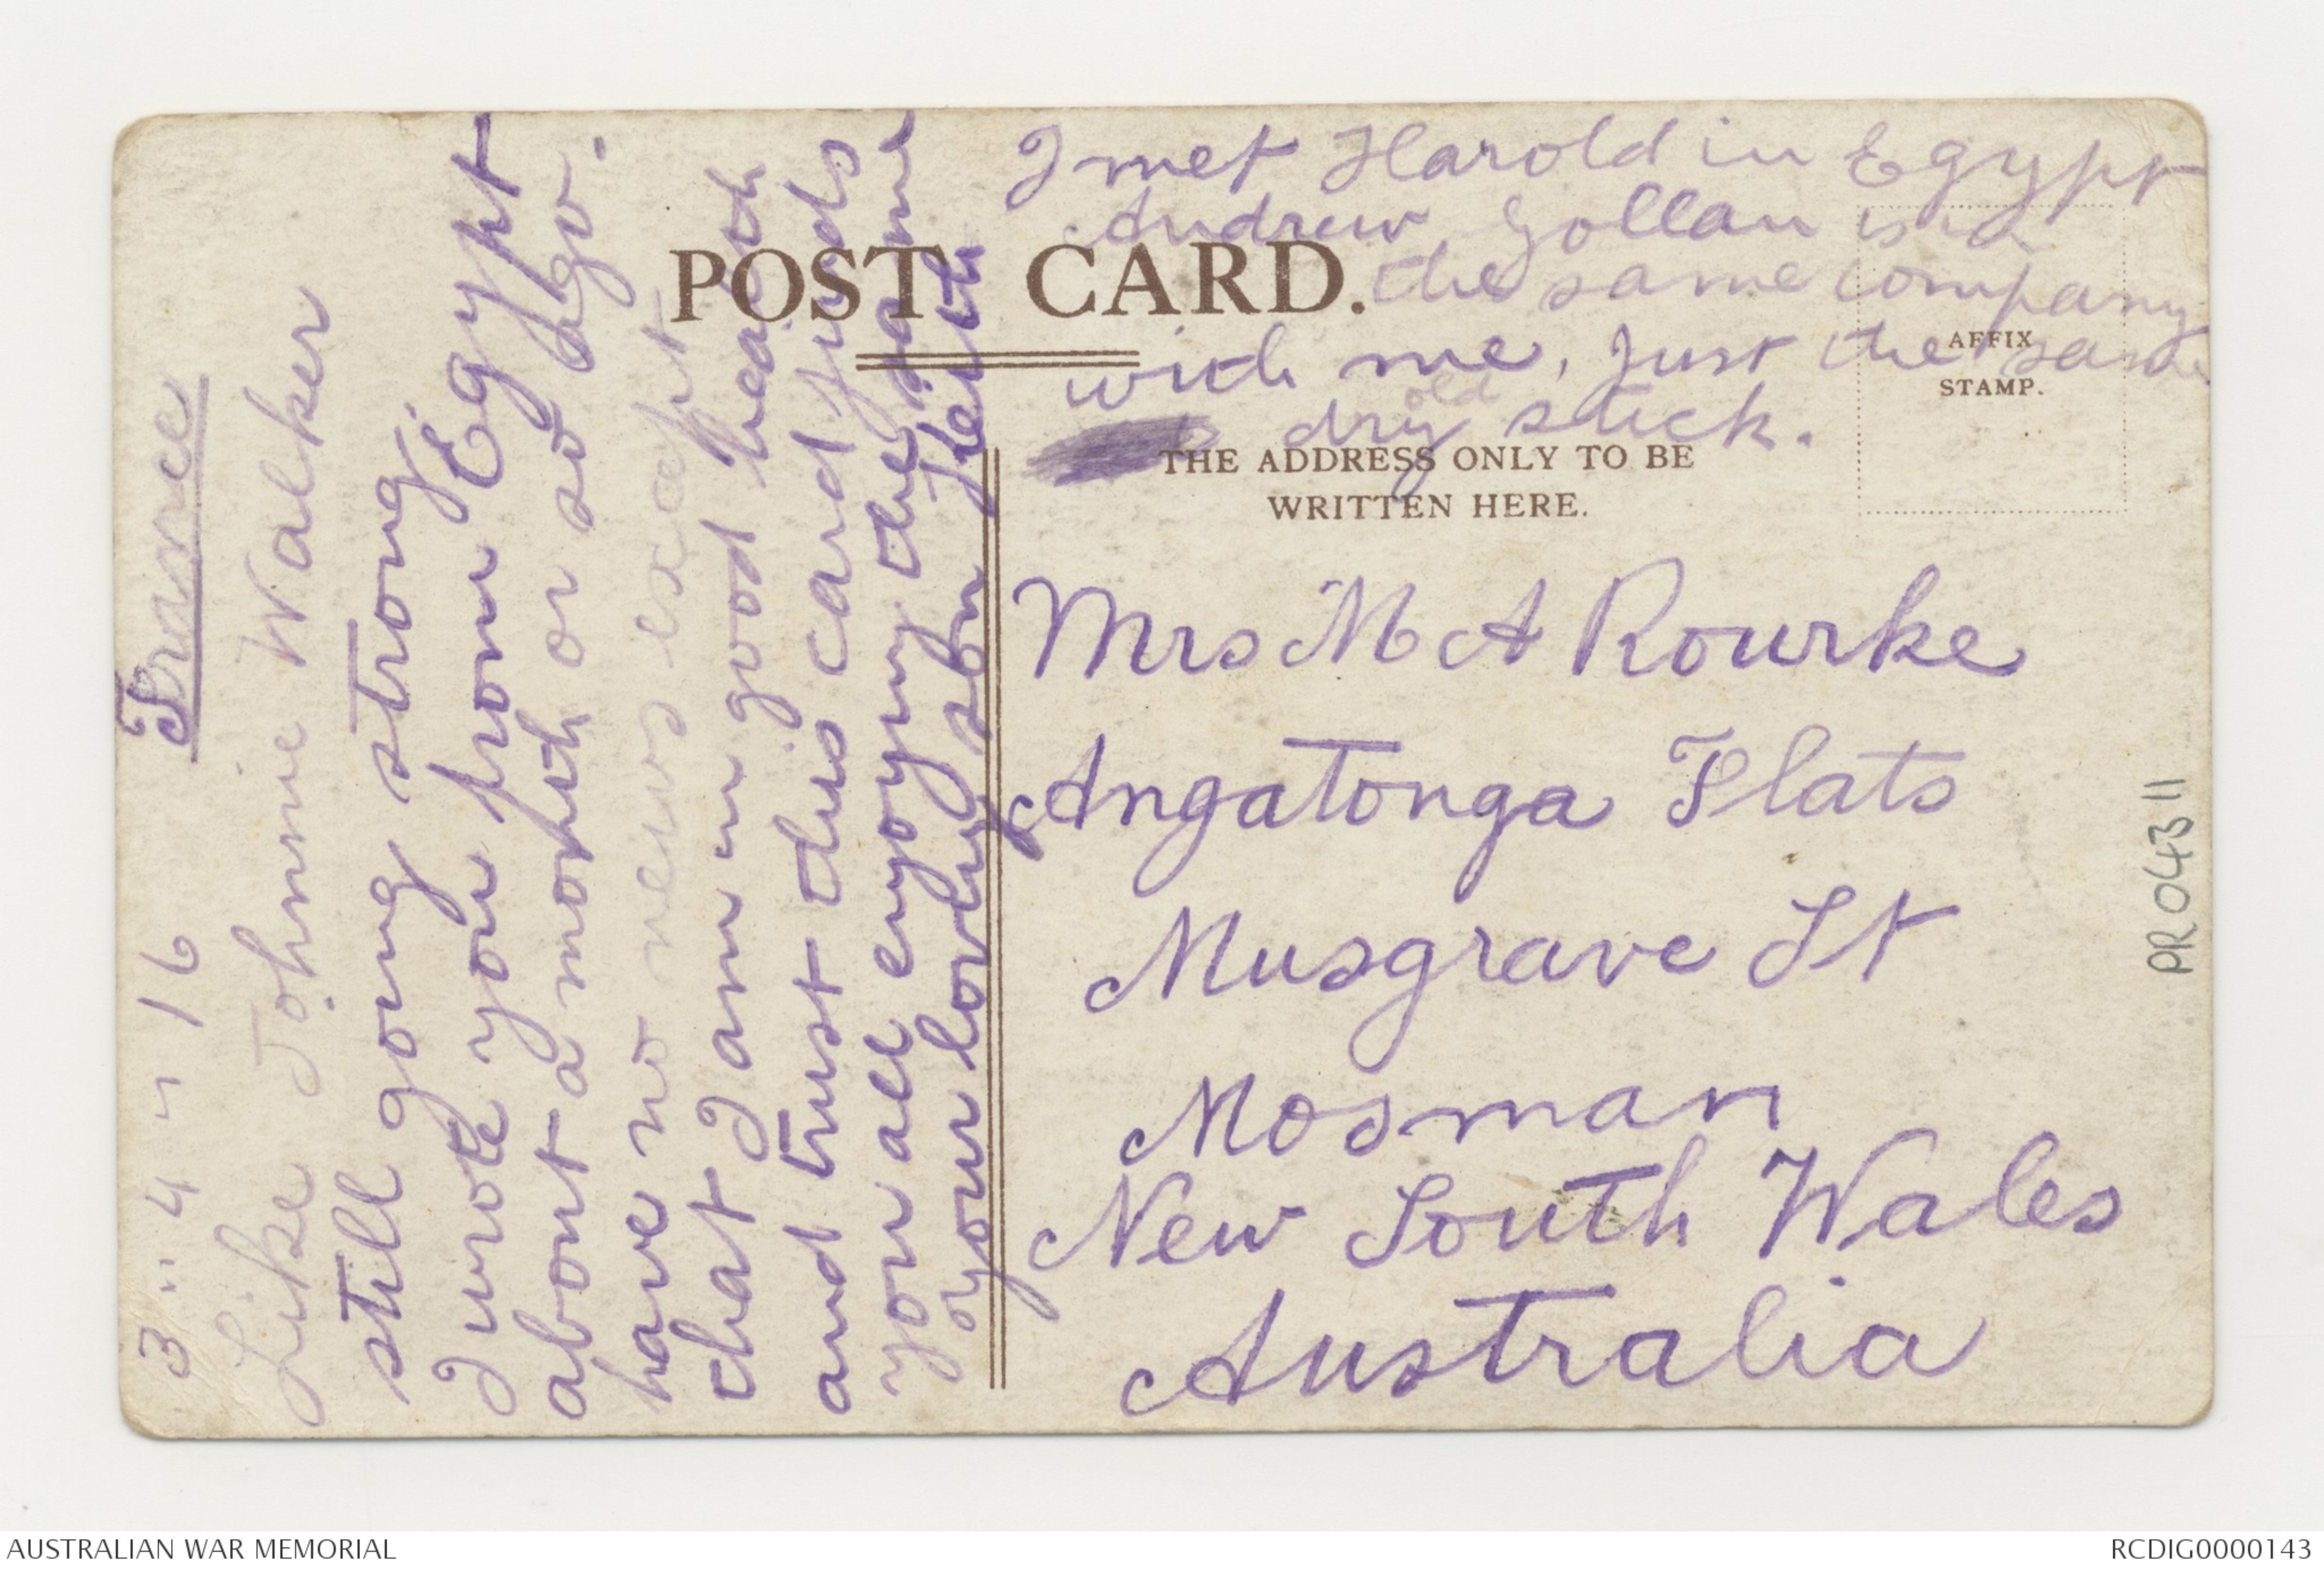 3 " 4 " 16 France
Like Johnnie Walker
still going strong.
I wrote you from Egypt
about a month or so ago.
have no news except
that I am in good health
and trust this card finds
you all enjoying the same
your loving son
I met Harold in Egypt
Andrew Gollan is in
the same company
with me, just the same
old
dry stick.
POST CARD.
AFFIX
STAMP.
THE ADDRESS ONLY TO BE
WRITTEN HERE.
Mrs M A Rourke
Angatonga Flats
Musgrave St
Mosman
New South Wales
Australia
PR04311
AUSTRALIAN WAR MEMORIAL
RCDIG0000143